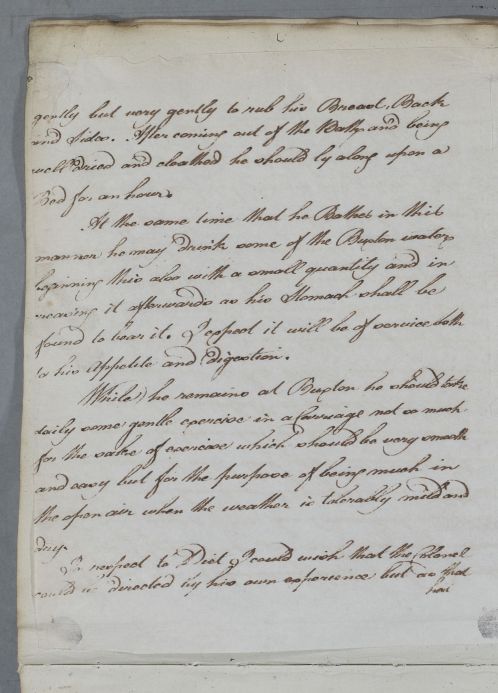 gently but very gently to rub his Breast, Back
and Sides. After coming out of the Bath, and being
well dried and cloathed he should ly along upon a
Bed for an hour.
At the same time that he Bathes in this
manner he may drink some of the Buxton water
beginning this also with a small quantity and in
creasing it afterwards as his Stomach shall be
found to bear it. I expect it will be of service both
to his Appetite and digestion.
While he remains at Buxton he should take
daily some gentle exercise in a Carriage not so much
for the sake of exercise which should be very smooth
and easy but for the purpose of being much in
the open air when the weather is tolerably mild and
dry.
In respect to Diet I could wish that the Colonel
could be directed by his own experience but as that
has